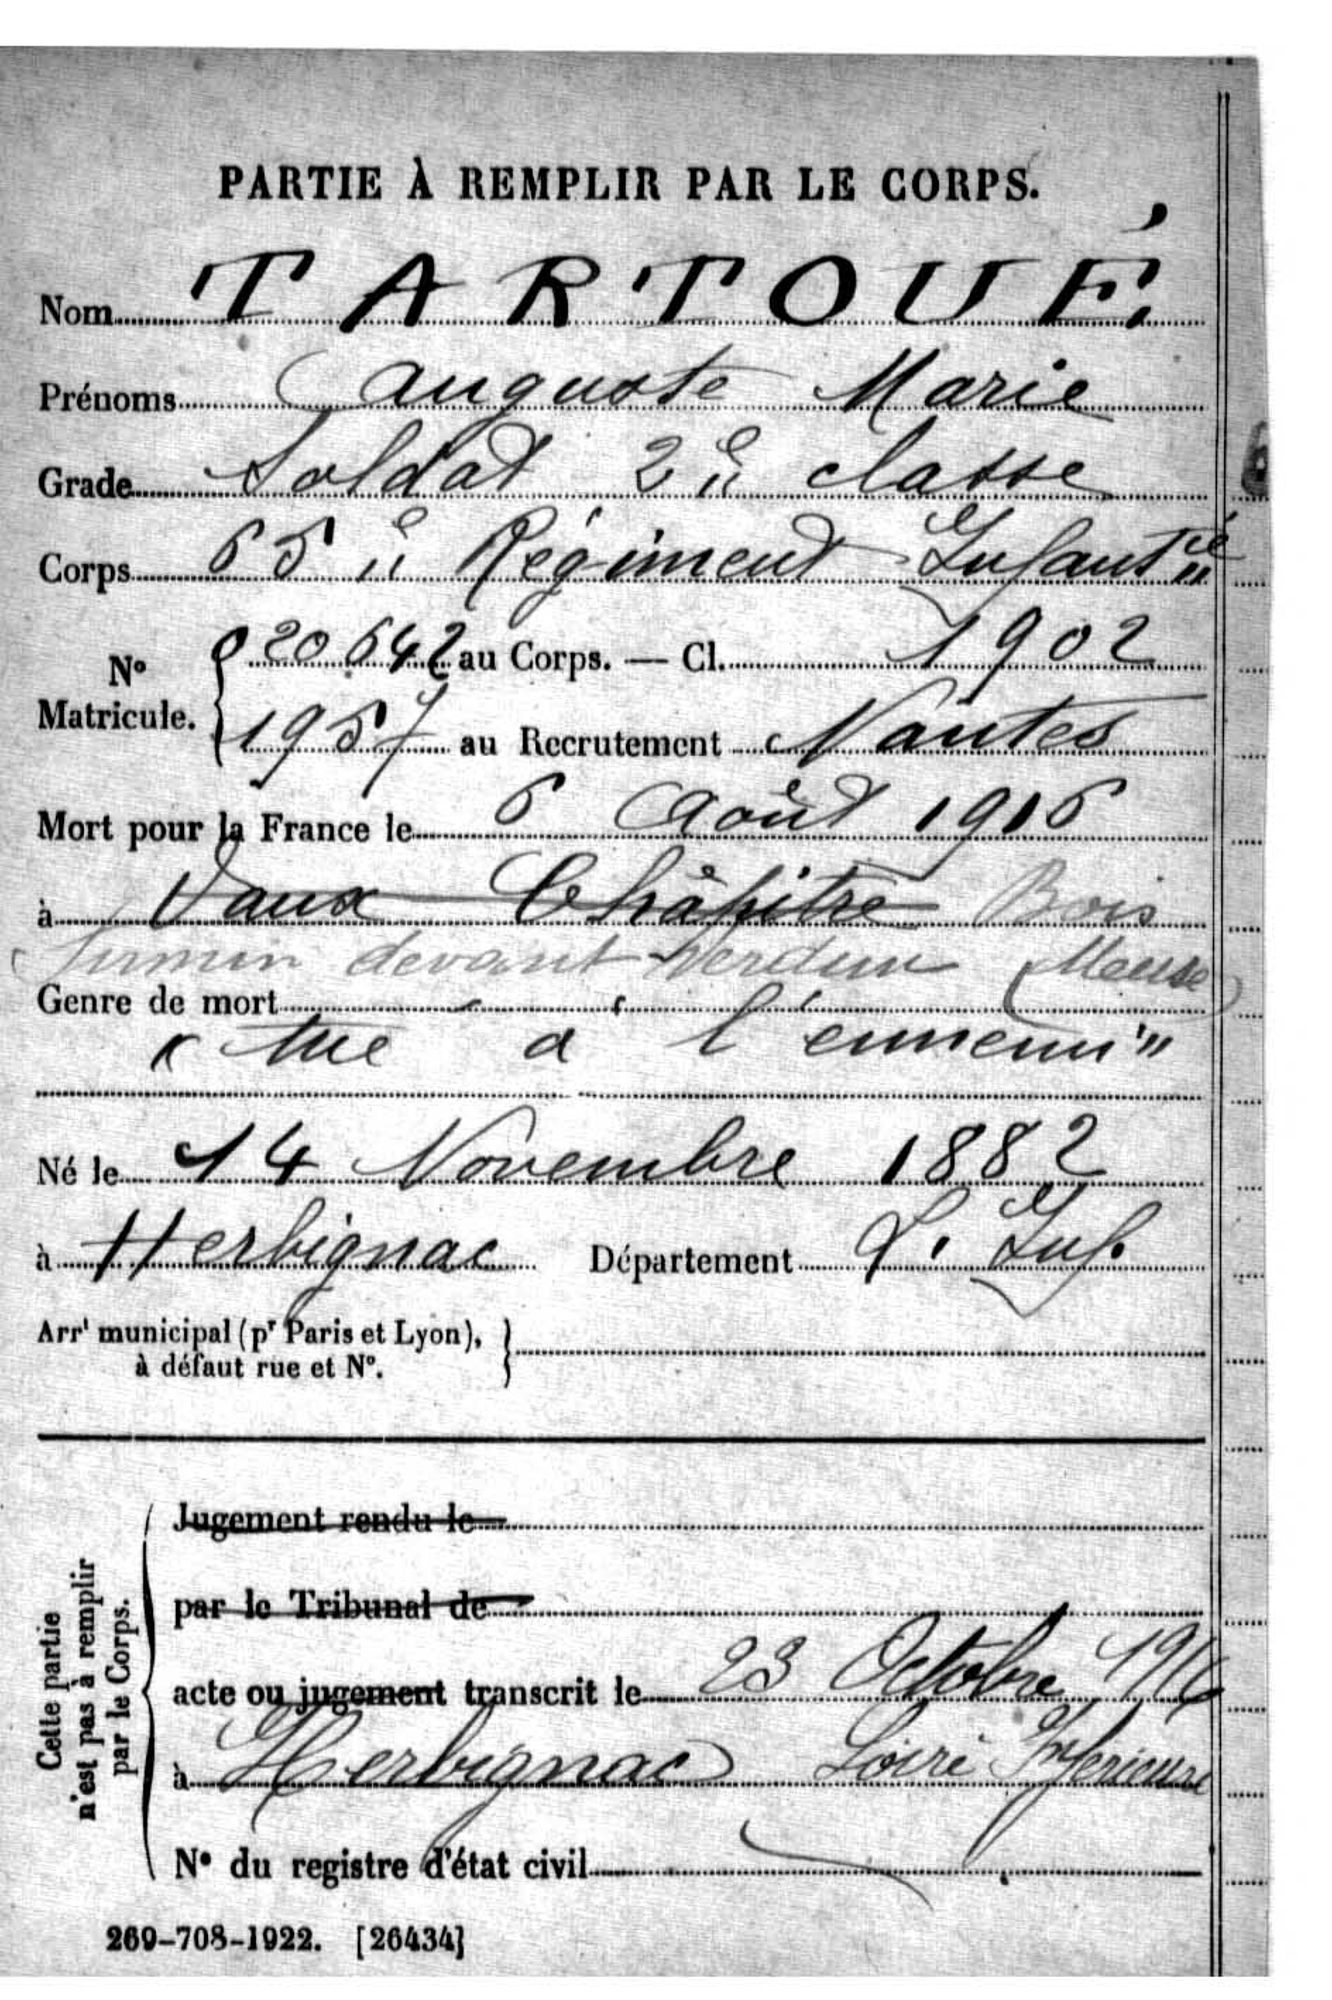 PARTIE À REMPLIR PAR LE CORPS.
Nom TARTOUÉ
Prénoms Auguste Marie
Grade Soldat 2è classe
Corps 65è Régiment Infantie
No
Matricule.
20642 au Corps. — Cl. 1902
1957 au Recrutement Nantes
Mort pour la France le 6 Août 1916
à Vaux Châpitre Bois
Fumin devant Verdun (Meuse)
Genre de mort
"tué à l'ennemi"
Né le 14 Novembre 1882
à Herbignac Département L. Inf.
Arrt municipal (pr Paris et Lyon),
à défaut rue et N°.
Cette partie
n'est pas à remplir
par le Corps.
Jugement rendu le
par le Tribunal de
acte ou jugement transcrit le 23 Octobre 1916
à Herbignac Loire Inférieure
N° du registre d'état civil
269-708-1922. [26434]